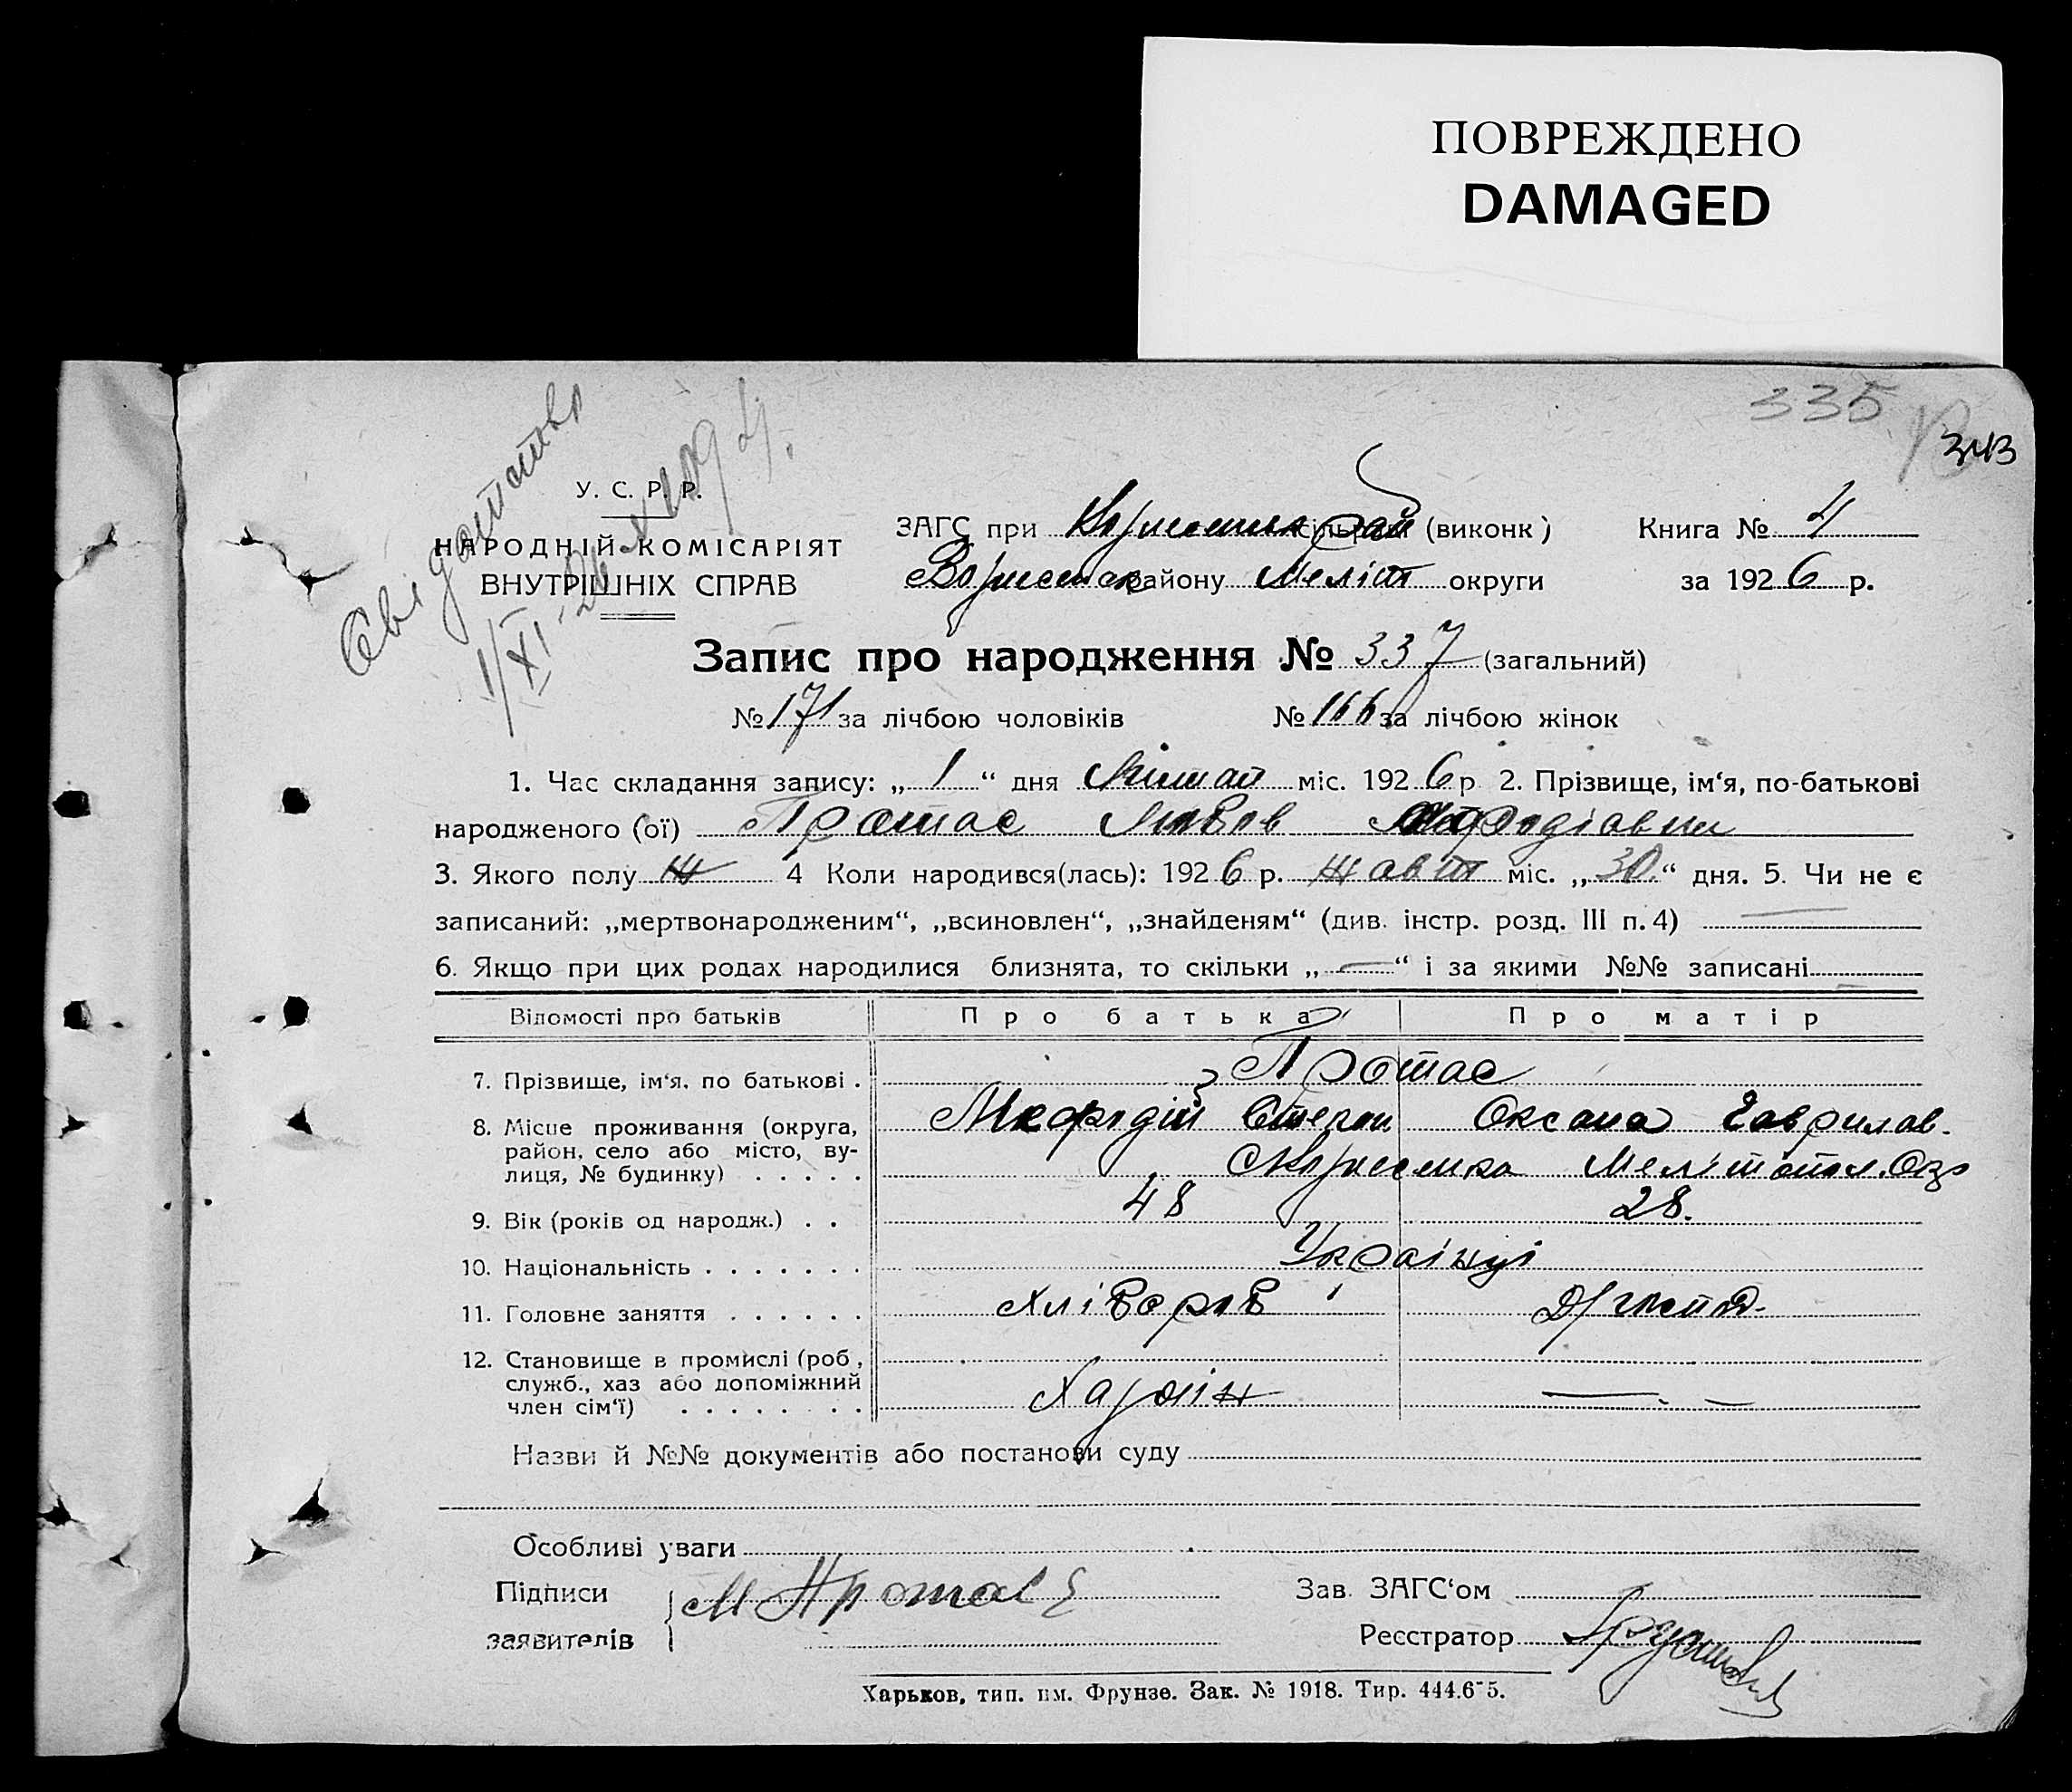 ПОВРЕЖДЕНО
DAMAGED
335
343
У. С. Р. Р.
НАРОДНІЙ КОМІСАРІЯТ
ВНУТРІШНІХ СПРАВ
ЗАГС при сільраді (виконк)
району Меліт округи
Книга № 4
за 1926 р.
Запис про народження № 337 (загальний)
№ 171 за лічбою чоловіків № 166 за лічбою жінок
1. Час складання запису: „1“ дня Листоп міс. 1926 р 2. Прізвище, ім‘я, по-батькові
народженого (ої) Протас Любов Мефодіовна
3. Якого полу Ж 4 Коли народився(лась): 1926 р. Жовт міс. „30“ дня. 5. Чи не є
записаний: „мертвонародженим“, „всиновлен“, „знайденям“ (див. інстр. розд. III п. 4)
6. Якщо при цих родах народилися близнята, то скільки „—“ і за якими №№ записані
Відомості про батьків Про батька Про матір
7. Прізвище, ім‘я, по батькові . Протас
Мефодій Степан Оксана Гаврилов.
8. Місце проживання (округа,
район, село або місто, ву-
лиця, № будинку) . . . . . Мелітопол. Окр
9. Вік (років од народж.) . . 48 28.
10. Національність . . . . . . . Українці
11. Головне заняття . . . . . . Хлібороб
12. Становище в промислі (роб,
служб., хаз або допоміжний
член сім‘ї) . . . . . . . . Хазяїн — . —
Назви й №№ документів або постанови суду
Особливі уваги
Підписи
заявителів
М Протас
Зав. ЗАГС‘ом
Реєстратор
Харьков, тип. им. Фрунзе. Зак. № 1918. Тир. 444.675.